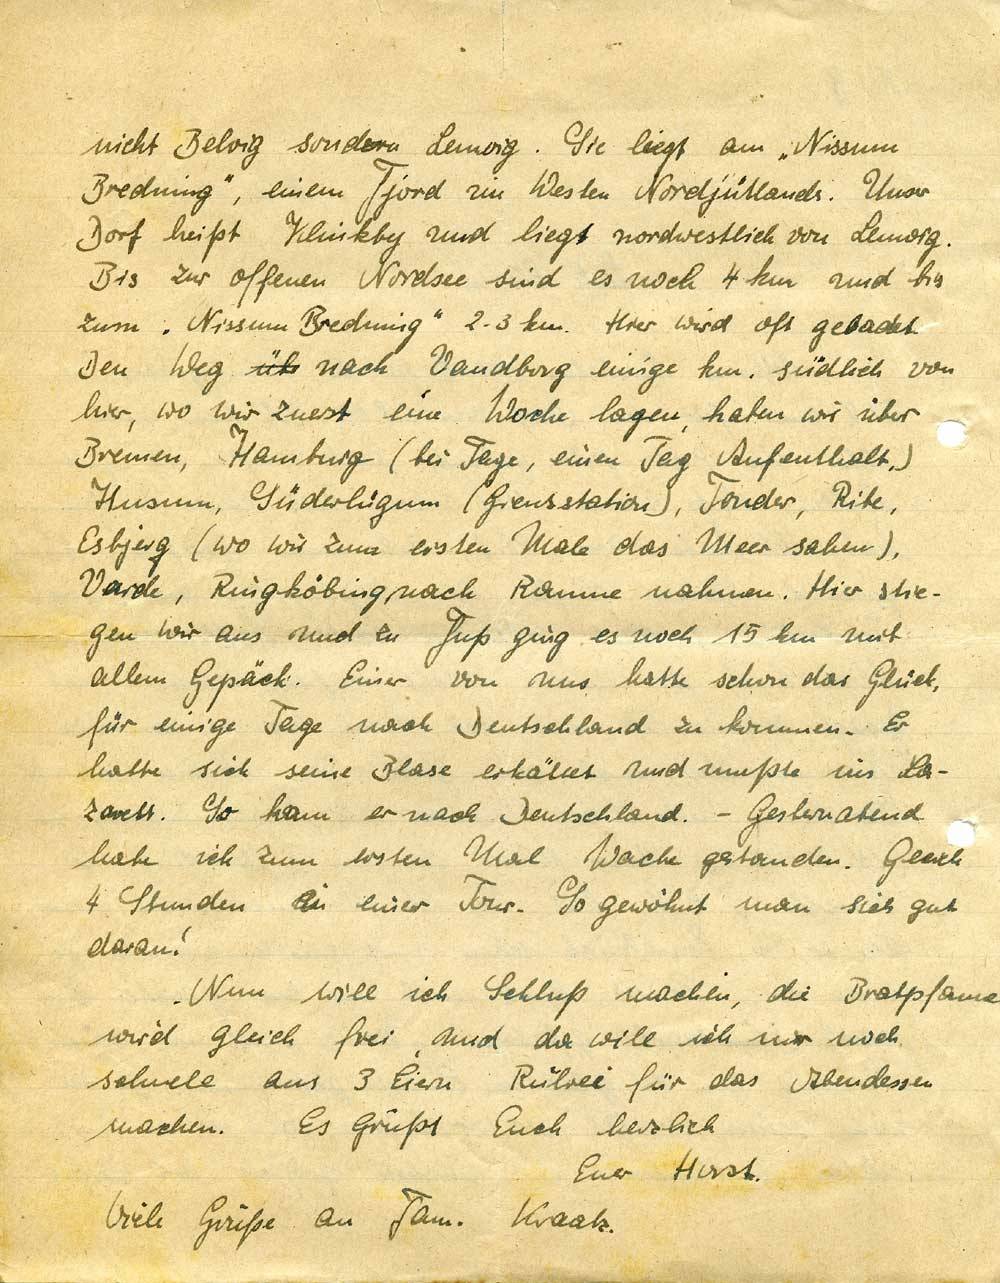 nicht Belvig sondern Lemvig. Sie liegt am „Nissum
Bredning", einem Fjord im Westen Nordjütlands. Unser
Dorf heißt Klinkby und liegt nordwestlich von Lemvig.
Bis zur offenen Nordsee sind es noch 4 km und bis
zum „Nissum Bredning" 2-3 km. Hier wird oft gebadet.
Den Weg üb nach Vandborg einige km. südlich von
hier, wo wir zuerst eine Woche lagen, haben wir über
Bremen, Hamburg (bei Tage, einen Tag Aufenthalt,)
Husum, Süderlügum (Grenzstation), Tonder, Ribe,
Esbjerg (wo wir zum ersten Male das Meer sahen),
Varde, Ringköbing, nach Ramme nahmen. Hier stie-
gen wir aus und zu Fuß ging es noch 15 km mit
allem Gepäck. Einer von uns hatte schon das Glück,
für einige Tage nach Deutschland zu kommen. Er
hatte sich seine Blase erkältet und mußte ins La-
zarett. So kam er nach Deutschland. - Gesternabend
habe ich zum ersten Mal Wache gestanden. Gleich
4 Stunden in einer Tour. So gewöhnt man sich gut
daran!
Nun will ich Schluß machen, die Bratpfanne
wird gleich frei, und da will ich nur noch
schnell aus 3 Eiern Rührei für das Abendessen
machen. Es grüßt Euch herzlich
Euer Horst.
Viele Grüße an Fam. Kraatz.